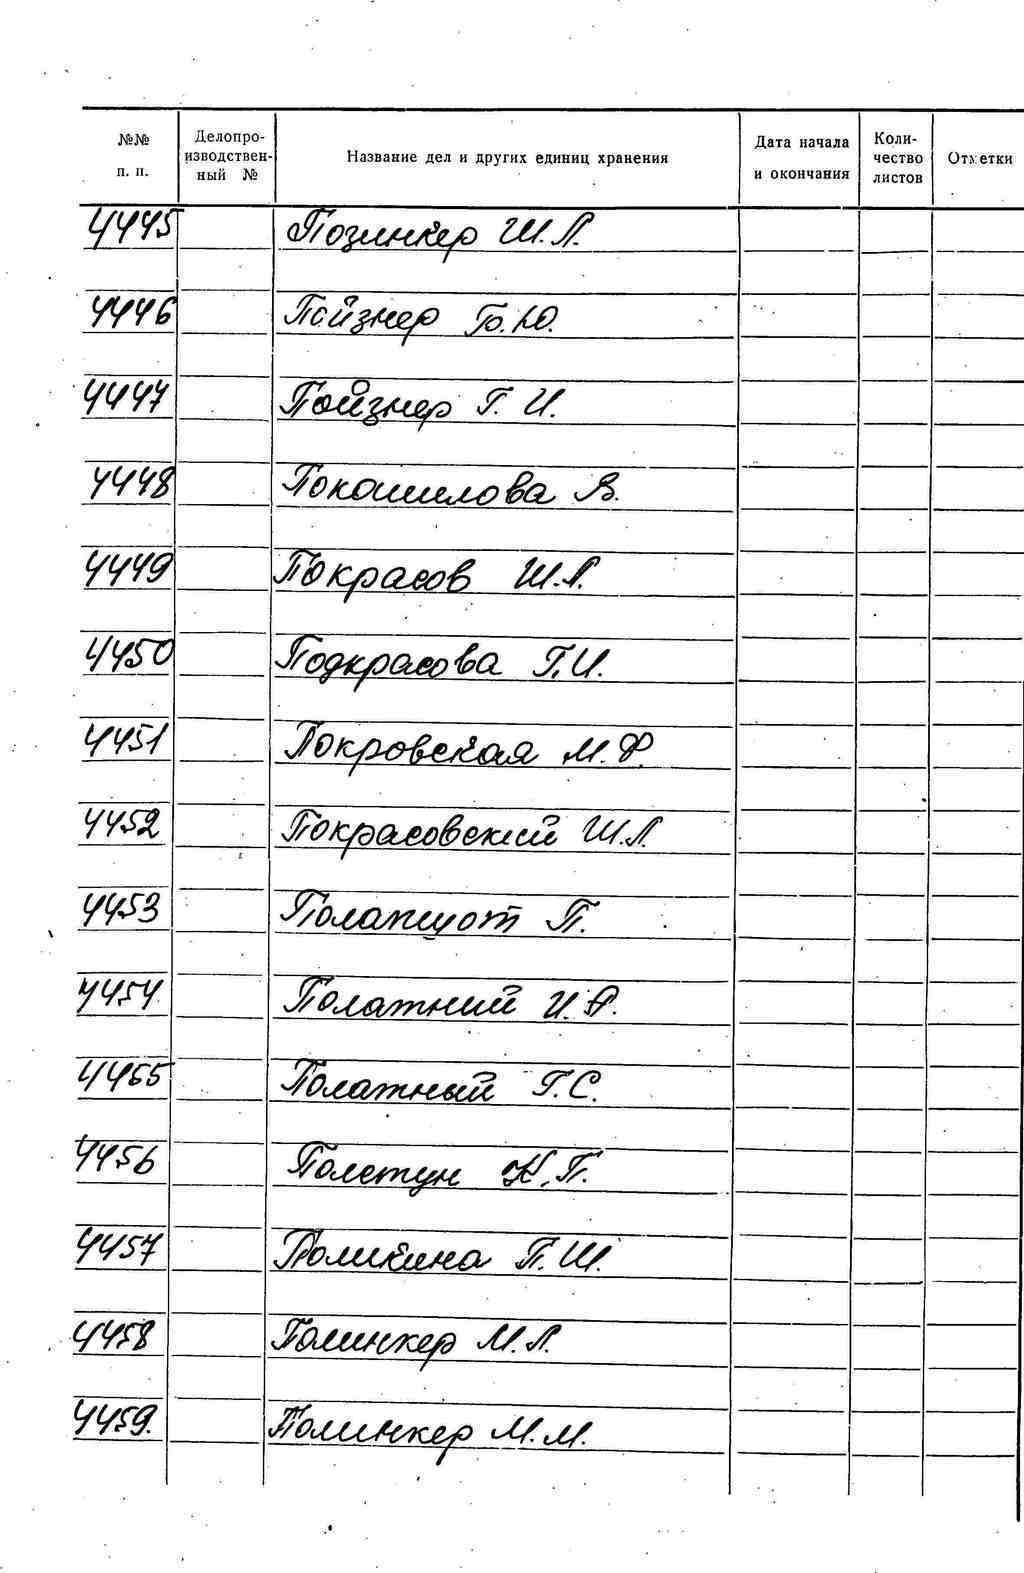 №№ п. п. Делопроизводственный № Название дел и других единиц хранения Дата начала и окончания Количество листов Отметки
4445 Позинкер Ш.Л.
4446 Пойзнер Б.Ю.
4447 Пойзнер Г.И.
4448 Покошилова В.
4449 Покрасов Ш.Л.
4450 Подкрасова Г.И.
4451 Покровская М.Ф.
4452 Покрасовский Ш.Л.
4453 П.
4454 Полатний И.
4455 Полатный Г.С.
4456 Полстун К.П.
4457 Поликина П.Ш.
4458 Полинкер М.Л.
4459. Полинкер М.М.